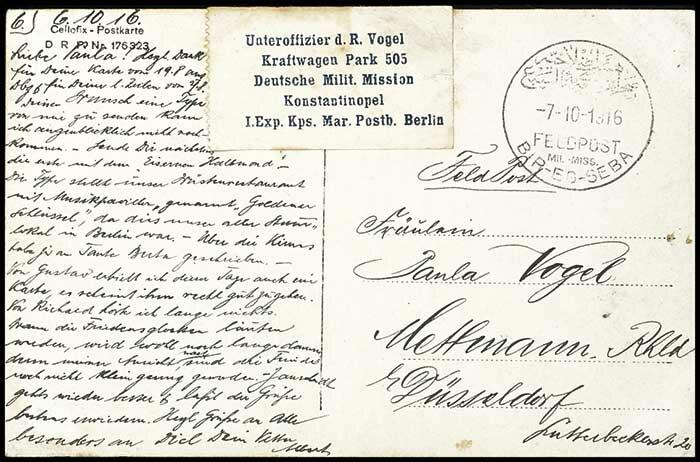 6.) 6.10.16.
Cellofix - Postkarte
D R P. Nr. 176323
Liebe Paula! Hzgl. Dank
für Deine Karte vom 19.8 aus
Deinen Wunsch eine Type
von mir zu senden kann
ich augenblicklich nicht nach-
kommen. - Sende Dir nächstens
die erste mit dem Eisernen Halbmond!
Die Type stellt unser Wüstenrestaurant
mit Musikpavillon, genannt "Goldener
Schlüssel", da dies unser alter Stamm-
lokal in Berlin war. - Über die Kinos
habe ja an Tante Berta geschrieben. -
Von Gustav erhielt ich diese Tage auch eine
Karte, es scheint ihm recht gut zu gehen.
Von Richard hörte ich lange nichts.
Wann die Friedensglocken läuten
werden, wird wohl noch lange dauern
denn meiner Ansicht nach sind die Feinde
noch nicht klein genug geworden.
gehts wieder besser & läßt die Grüße
bestens erwidern. Hzgl. Grüße an Alle
besonders an Dich Dein Vetter
Unteroffizier d. R. Vogel
Kraftwagen Park 505
Deutsche Milit. Mission
Konstantinopel
I.Exp. Kps. Mar. Postb. Berlin
-7-10-1916
FELDPOST
MIL.-MISS.
BIR-ES-SEBA
Feld Post
Fräulein
Paula Vogel
Mettmann, Rhld
b/ Düsseldorf
Lutterbeckerstr. 20